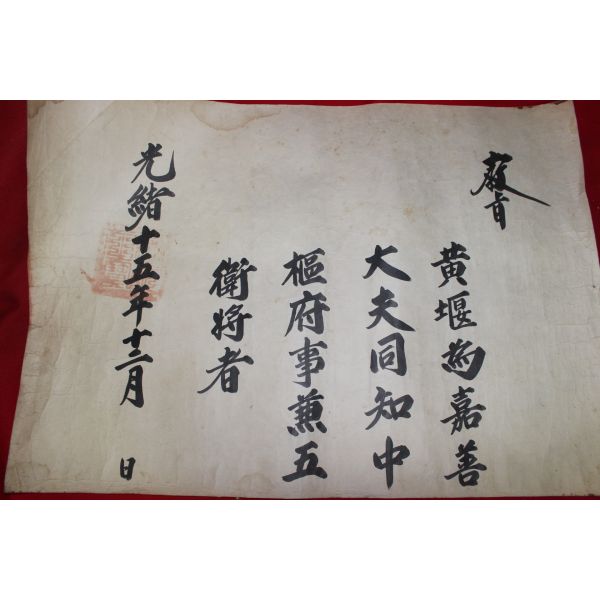 敎旨
黄堰為嘉善
大夫同知中
樞府事兼五
衛將者
光緖十五年十二月　日